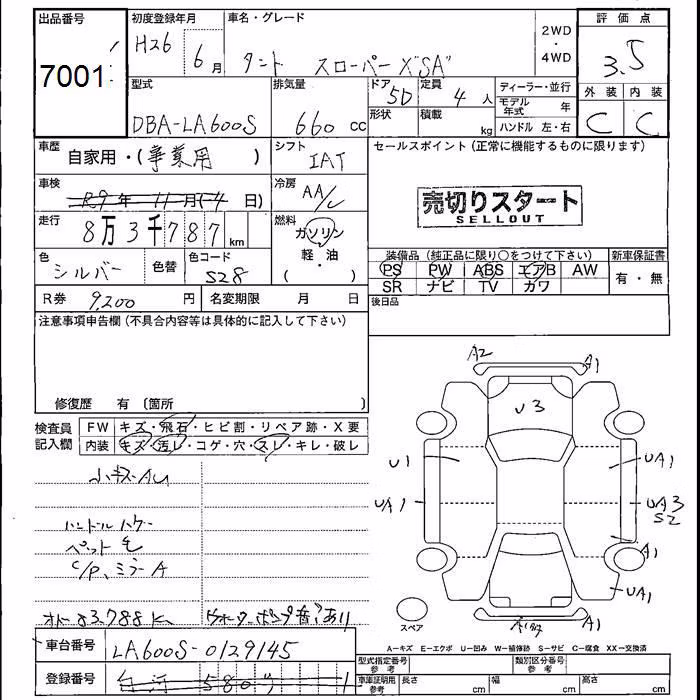 出品番号
7001
初度登録年月
H26 6月
車名・グレード
タント スローパー X"SA"
2WD
・
4WD
評価点
3.5
外装 内装
C C
型式
DBA-LA600S
排気量
660 cc
ドア 形状
5D
定員
4人
積載
kg
ディーラー・並行
モデル年式 年
ハンドル 左・右
車歴
自家用・(事業用 )
シフト
IAT
車検
R9年 11月(-4 日)
冷房
AA/C
走行
8万3千787 km
燃料
ガソリン
軽・油
( )
色
シルバー
色替
色コード
S28
R券 9,200 円
名変期限 月 日
セールスポイント (正常に機能するものに限ります)
売切りスタート
SELLOUT
装備品 (純正品に限り○をつけて下さい)
新車保証書
PS PW ABS エアB AW
SR ナビ TV カワ
有・無
後日品
注意事項申告欄 (不具合内容等は具体的に記入して下さい)
修復歴 有 〔箇所 〕
検査員記入欄
FW キズ・飛石・ヒビ割・リペア跡・X要
内装 キズ・汚レ・コゲ・穴・スレ・キレ・破レ
小キズAU
ハンドルハゲー
ペット毛
C/P、ミラーA
オドー83.788K
ウォーターポンプ音?あり
車台番号
LA600S-0129145
登録番号
白河 580 1
A2
A1
U3
U1
UA1
UA1
UA3
S2
A1
UA1
A1
スペア
A−キズ E−エクボ U−凹み W−補修跡 S−サビ C−腐食 XX−交換済
型式指定番号
参考
類別区分番号
参考
車庫証明用
参考
長さ cm 幅 cm 高さ cm